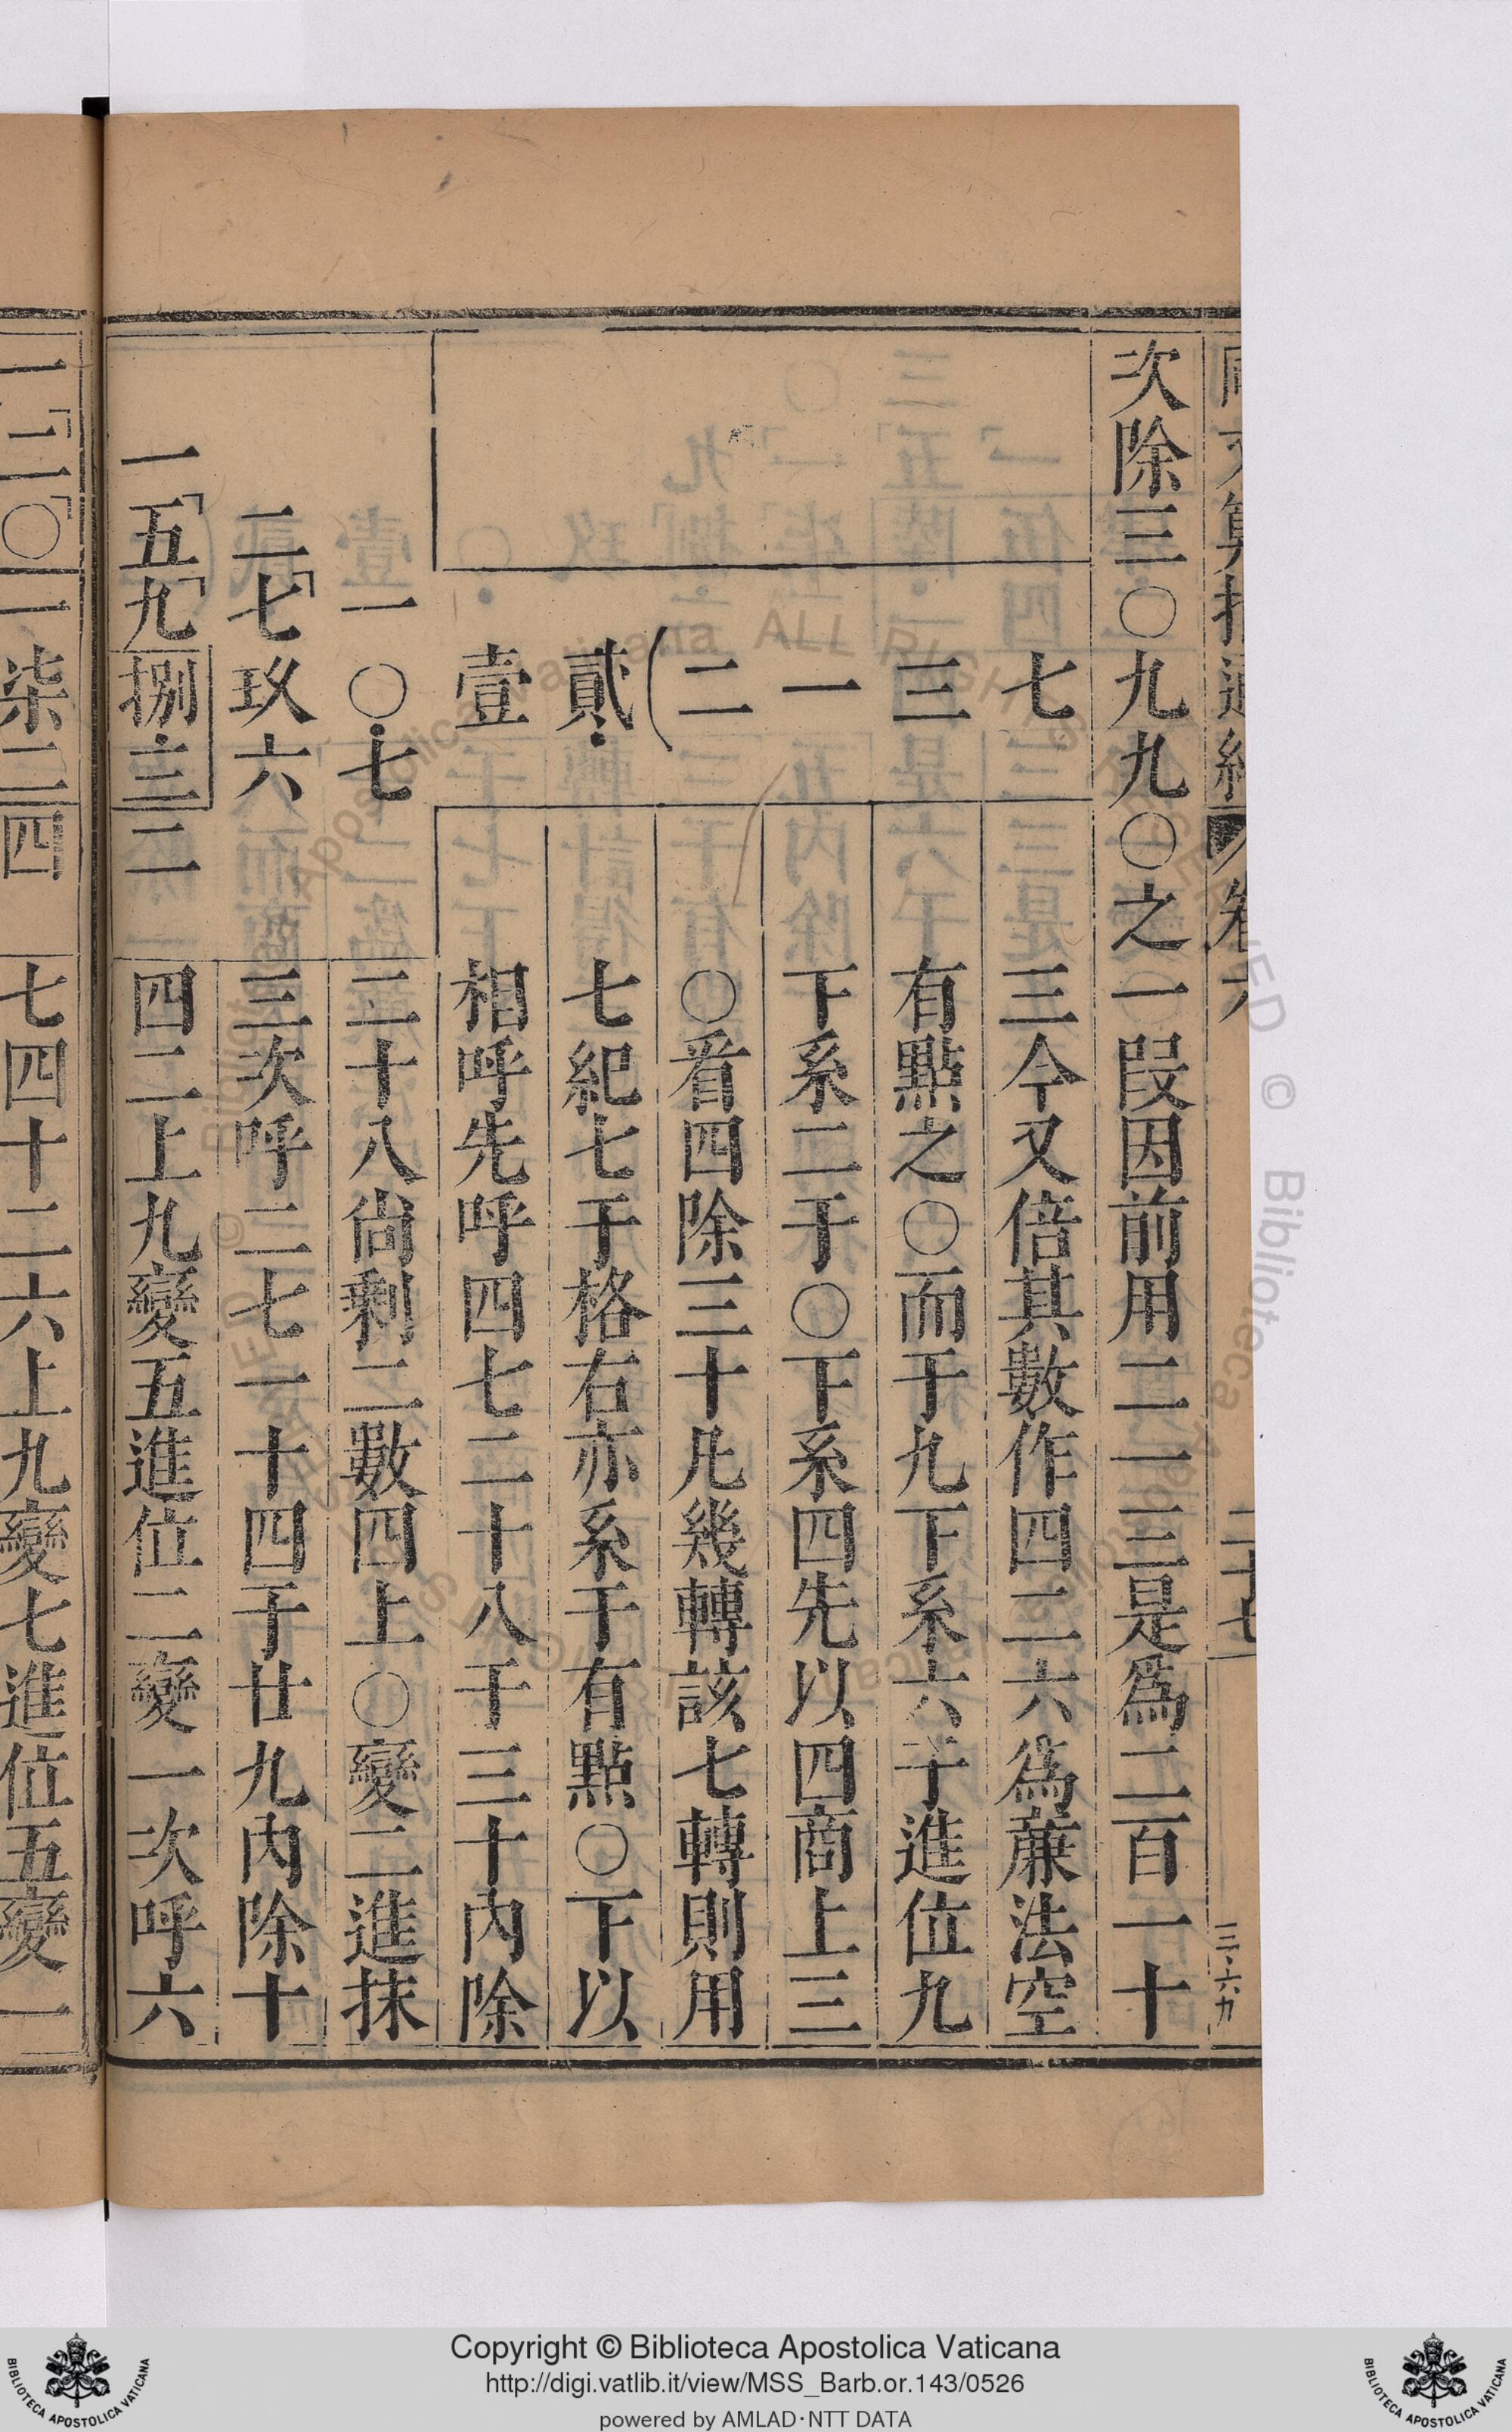 次除三〇九九〇之一段因前用二一三是爲二百一十
三今又倍其數作四二六爲蔴法空
有點之〇而于九下系六于進位九
下系二于〇下系四先以四商上三
〇看四除三十凡幾轉該七轉則用
七紀七于格右亦系于有點〇下以
相呼先呼四七二十八于三十內除
二十八尚剩二數四上〇變二進抹
三次呼二七一十四于廿九內除十
四二上九變五進位二變一次呼六
七
三
一
二
貳
壹
一〇七
二七玖六
一五九捌三二
一二〇一柒二四
七四十二六上九變七進位五變一
Copyright © Biblioteca Apostolica Vaticana
http://digi.vatlib.it/view/MSS_Barb.or.143/0526
powered by AMLAD·NTT DATA
BIBLIOTECA APOSTOLICA VATICANA
BIBLIOTECA APOSTOLICA VATICANA